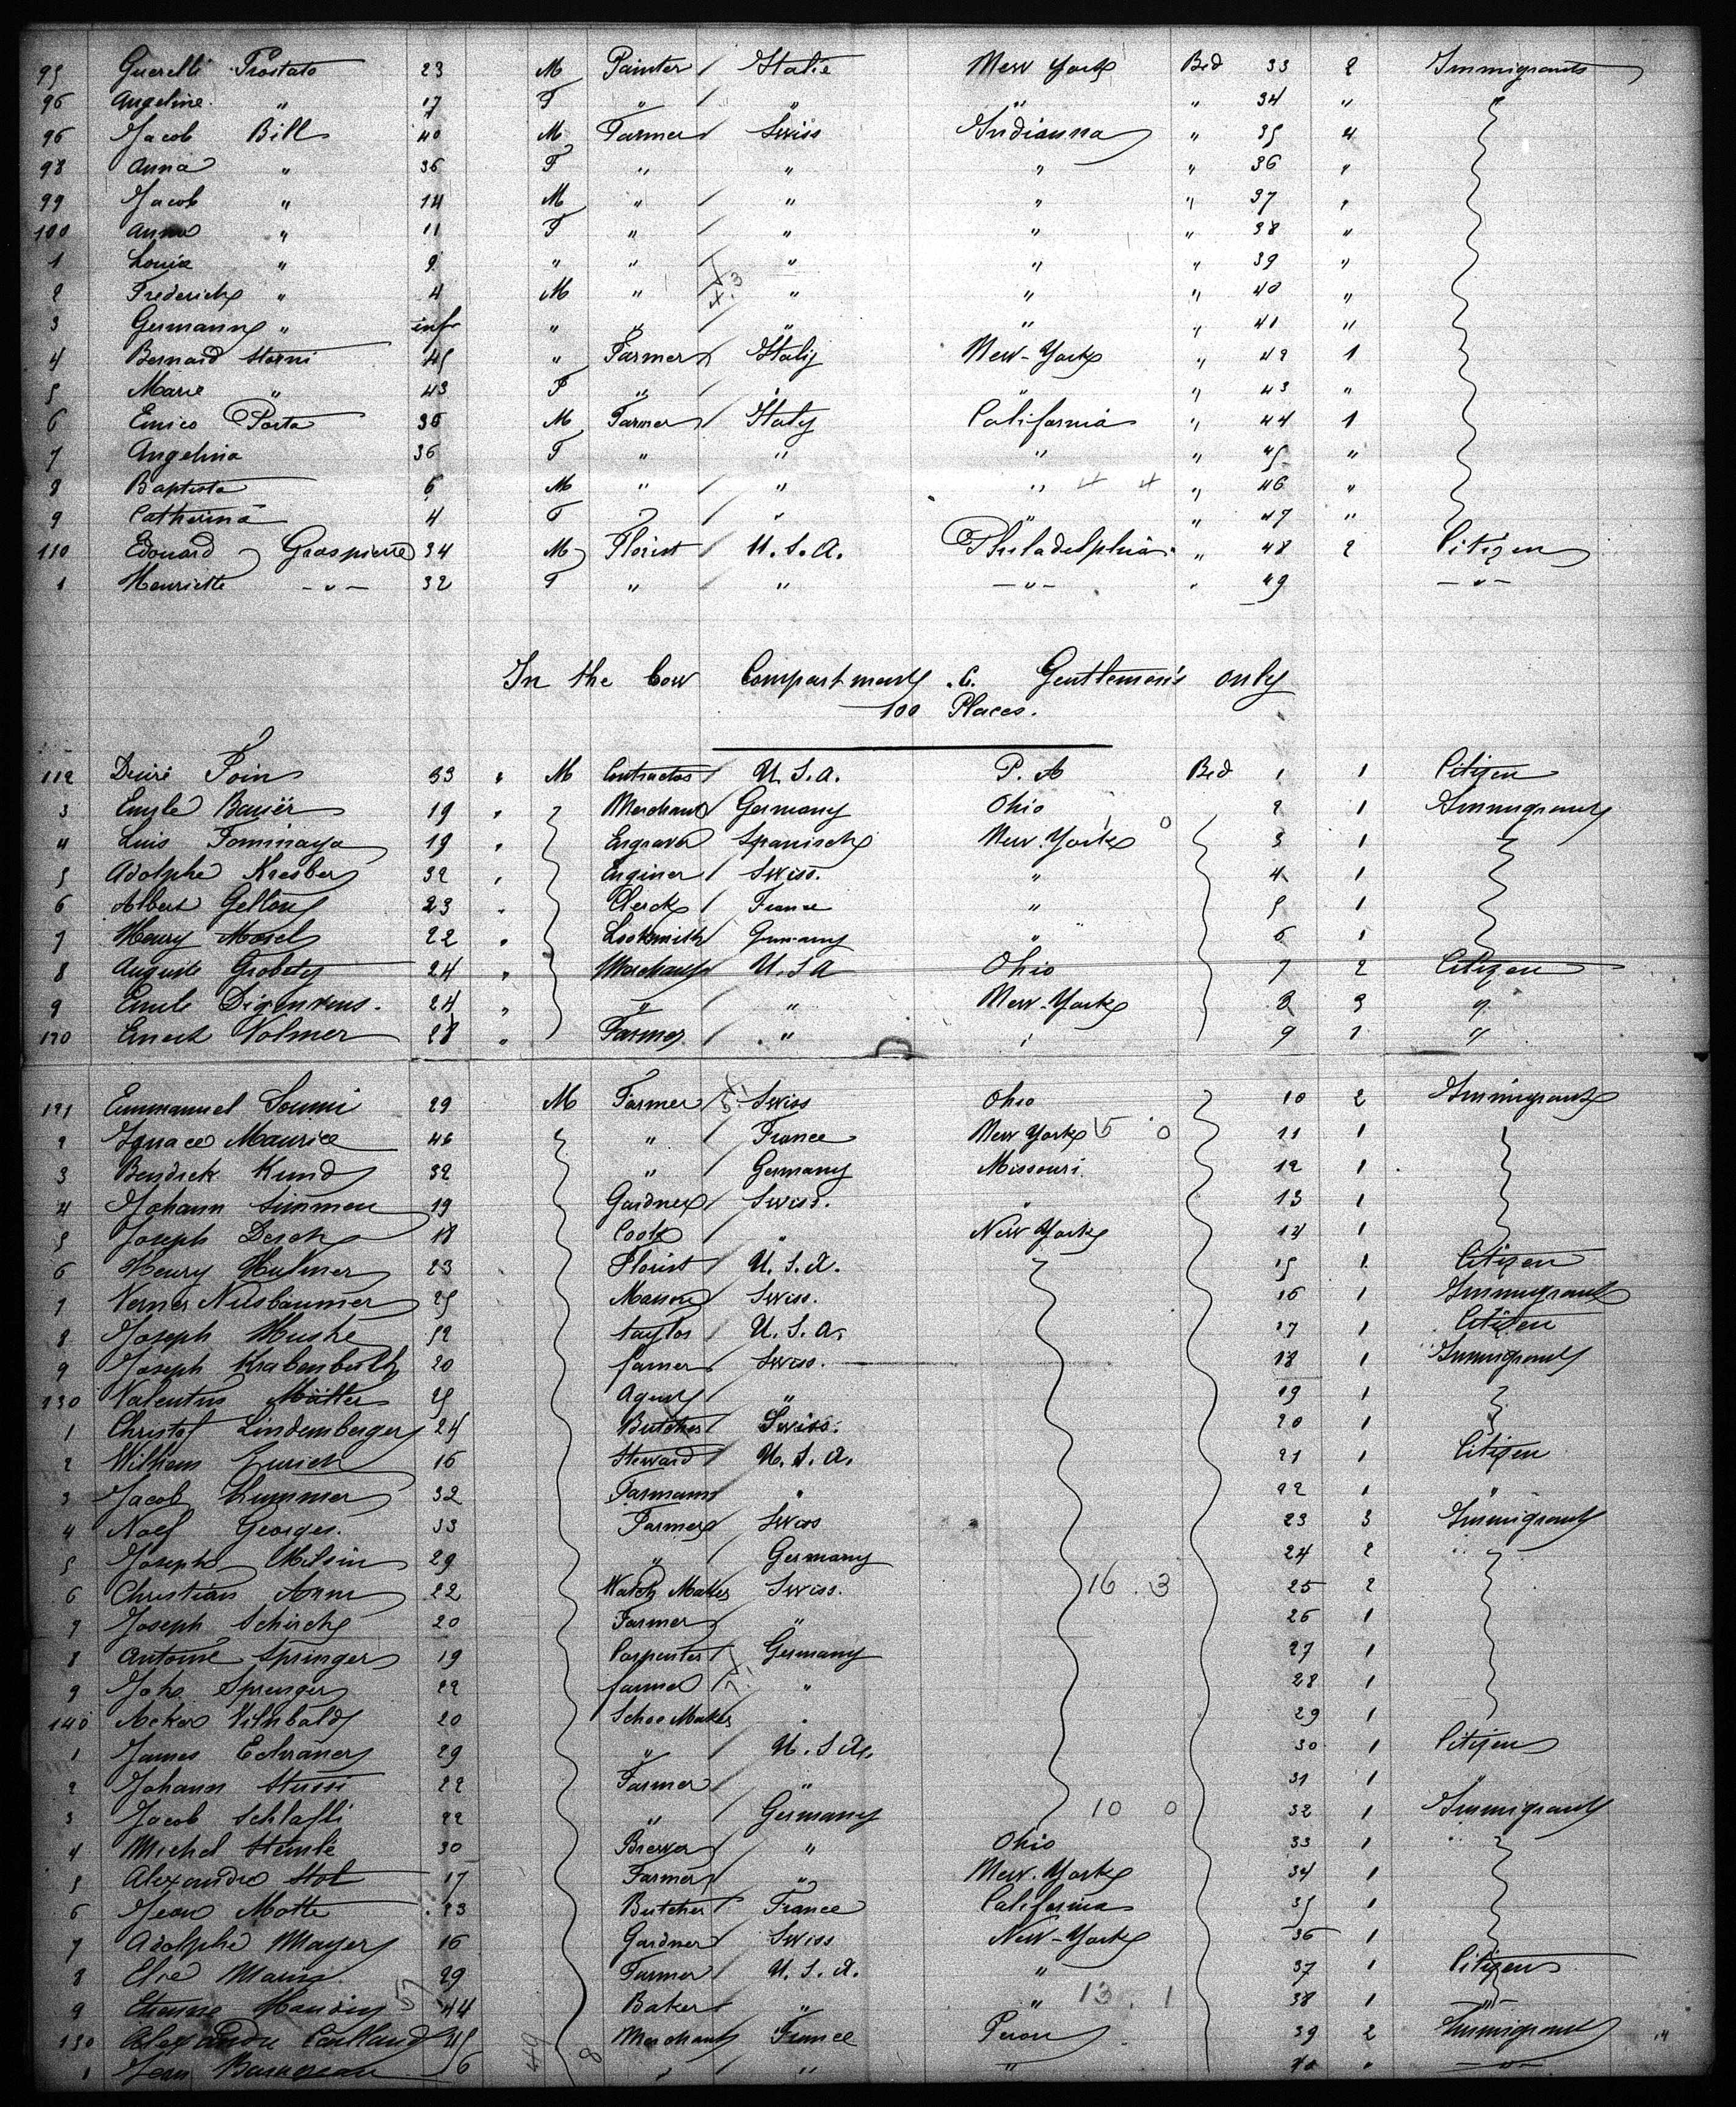 95 Guerelli Prostato 23 M Painter Italie New York Bed 33 2 Immigrants
96 Angeline " 17 F " " " " 34 "
96 Jacob Bill 40 M Farmer Swiss Indianna " 35 4
98 Anna " 36 F " " " " 36 "
99 Jacob " 14 M " " " " 37 "
100 Anna " 11 F " " " " 38 "
1 Louise " 9 " " " " " 39 "
2 Frederick " 4 M " " " " 40 "
3 Germann " inft " " " " " 41 "
4 Bernard Storni 45 " Farmer Italy New-York " 42 1
5 Marie " 43 F " " " " 43 "
6 Enrico Porta 36 M Farmer Italy California " 44 1
7 Angelina 36 F " " " " 45 "
8 Baptista 6 M " " " 4 4 " 46 "
9 Catherina 4 F " " " " 47 "
110 Edouard Grospierre 34 M Florist U.S.A. Philadelphia " 48 2 Citizen
1 Henriette -"- 32 F " " -"- " 49 -"-
In the bow Compartment .C. Gentlemen's only
100 Places.
112 Desiré Foin 33 " M Contractor U.S.A. P. A Bed 1 1 Citizen
3 Emile Bauër 19 " Merchant Germany Ohio 2 1 Immigrant
4 Luis Tominaya 19 " Engraver Spanisch New-York 3 1
5 Adolphe Kresber 32 " Enginer Swiss. " 4 1
6 Albert 23 " Clerck France " 5 1
7 Henry Mosel 22 " Locksmith Germany " 6 1
8 Auguste Grobety 24 " Merchant U.S.A Ohio 7 2 Citizen
9 Emile 24 " " " New-York 8 3 "
120 Ernest Volmer 28 " Farmer " " 9 1 "
121 Emmanuel Sommi 29 M Farmer Swiss Ohio 10 2 Immigrant
2 Ignace Maurice 46 " France New York 5 0 11 1
3 Bendick Kund 32 " Germany Missouri 12 1
4 Johann Simmen 19 Gardner Swiss. " 13 1
5 Joseph Derck 18 Cook " New York 14 1
6 Henry Hulmer 23 Florist U.S.A. 15 1 Citizen
7 Verner Nusbaumer 25 Mason Swiss. 16 1 Immigrant
8 Joseph Huske 52 taylor U.S.A. 17 1 Citizen
9 Joseph Krahenbuhl 20 farmer Swiss. 18 1 Immigrant
130 Valentin Mätter 25 Agent " 19 1
1 Christof Lindemberger 24 Butcher Swiss. 20 1
2 William Zurich 16 Steward U.S.A. 21 1 Citizen
3 Jacob Lummer 32 Farmann " 22 1 "
4 Noel Georges. 33 Farmer Swiss 23 3 Immigrant
5 Joseph Meisin 29 " Germany 24 2
6 Christian Amm 22 Watch Maker Swiss. 16 . 3 25 2
7 Joseph Schirch 20 Farmer " 26 1
8 Antoine Springer 19 Carpenter Germany 27 1
9 Joh. Sprenger 22 farmer " 28 1
140 Acker Vilhbald 20 Schoe Maker " 29 1
1 James 29 " U.S.A. 30 1 Citizen
2 Johann Stussi 22 Farmer " 31 1 "
3 Jacob Schlafli 22 " Germany 10 0 32 1 Immigrant
4 Michel Stemlé 30 Brewer " Ohio 33 1
5 Alexandre Stol 17 Farmer " New-York 34 1
6 Jean Motte 23 Butcher France California 35 1
7 Adolphe Mayer 16 Gardner Swiss New-York 36 1
8 Maring 29 Farmer U.S.A. " 37 1 Citizen
9 Etienne Maudin 44 Baker " " 13 . 1 38 1 -"-
150 Alexandre Cailland 45 Merchant France Perou 39 2 Immigrant
1 Jean 56 " " " 40 " -"-